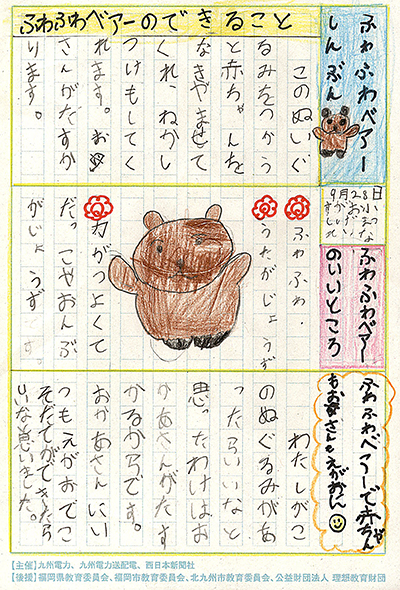 ふわふわベアー
しんぶん
ふわふわベアーのできること
このぬいぐ
るみをつかう
と赤ちゃんを
なきやませて
くれ、ねかし
つけもしてく
れます。お
さんがたすか
ります。
9月28日
ふわふわベアー
のいいところ
ふわふわ・
うたがじょうず
力がつよくて
だっこやおんぶ
がじょうず
ふわふわベアーで赤ちゃん
もお母さんもえがおん
わたしがこ
のぬぐるみがあ
ったらいいなと
思ったわけはお
かあさんがたす
かるからです。
おかあさんにい
つもえがおでこ
そだてができたら
いいな思いました。
【主催】九州電力、九州電力送配電、西日本新聞社
【後援】福岡県教育委員会、福岡市教育委員会、北九州市教育委員会、公益財団法人 理想教育財団